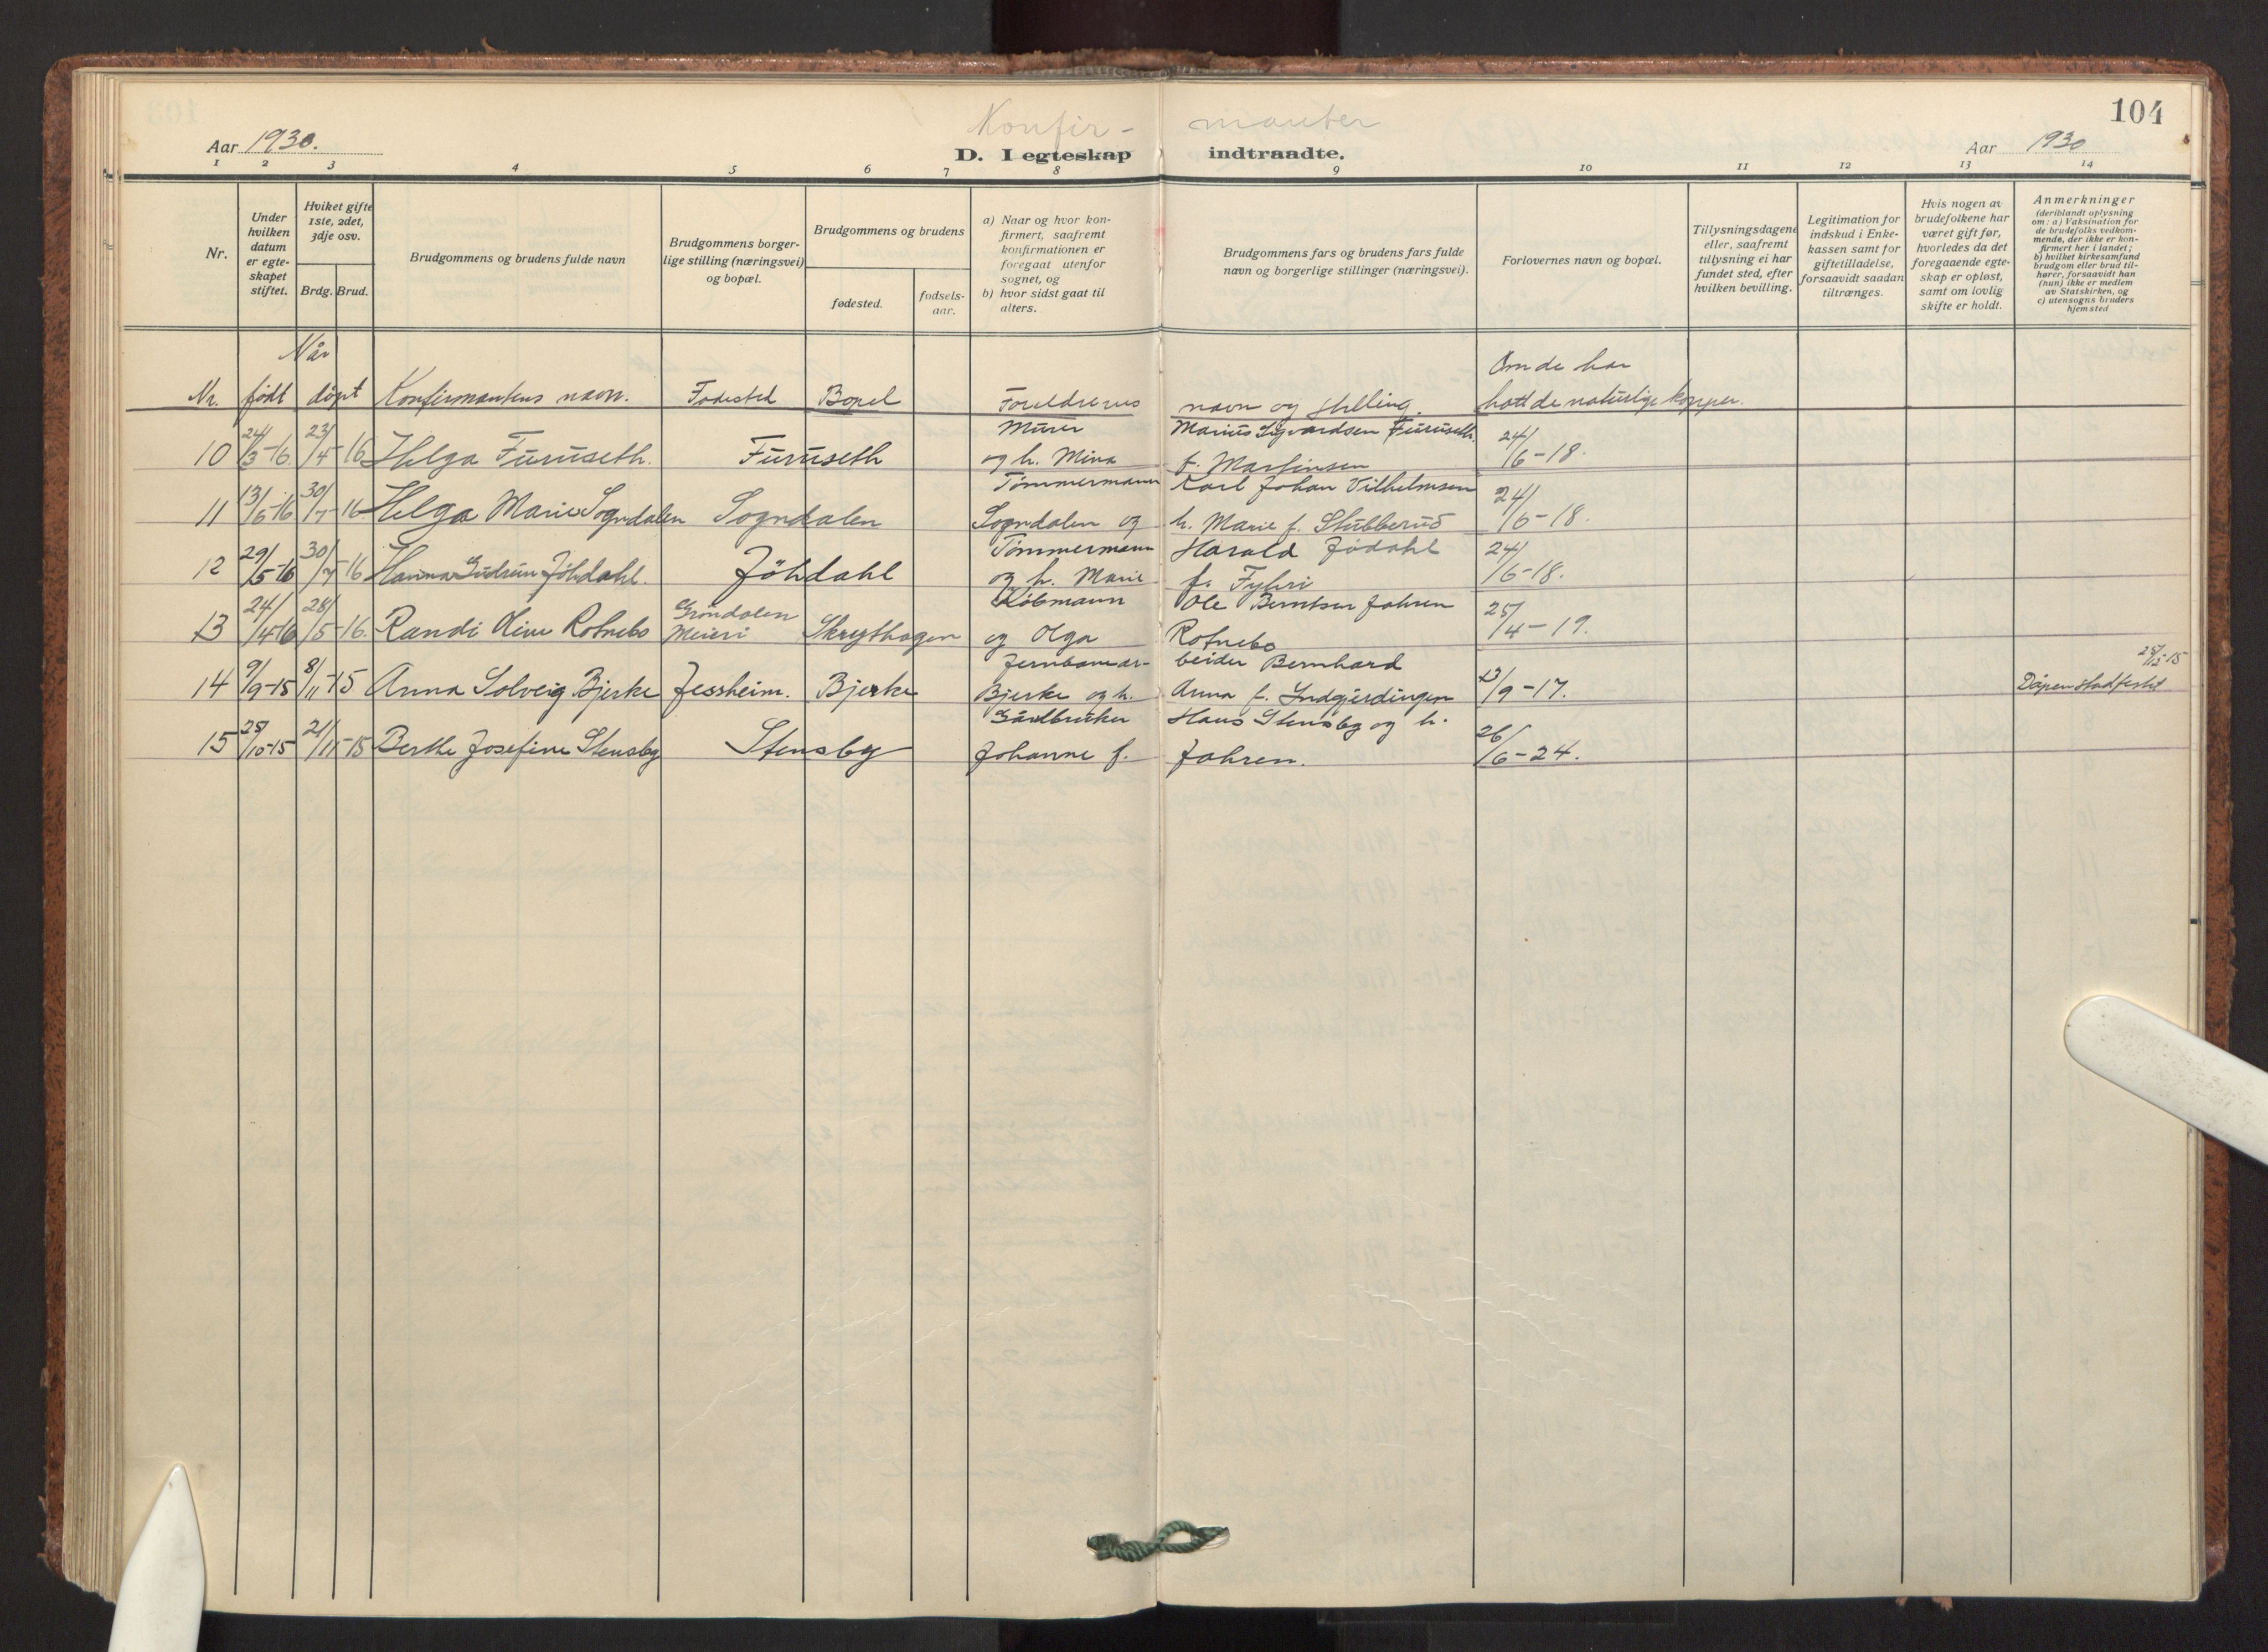 104
Konfir- manter
Aar 1930. D. I egteskap indtraadte. Aar 1930
1 2 3 4 5 6 7 8 9 10 11 12 13 14
Nr.
Under hvilken datum er egte-skapet stiftet.
Hviket gifte 1ste, 2det, 3dje osv.
Brdg. Brud.
Brudgommens og brudens fulde navn
Brudgommens borger-lige stilling (næringsvei) og bopæl.
Brudgommens og brudens
fødested. fødsels-aar.
a) Naar og hvor kon-firmert, saafremt konfirmationen er foregaat utenfor sognet, og
b) hvor sidst gaat til alters.
Brudgommens fars og brudens fars fulde navn og borgerlige stillinger (næringsvei).
Forlovernes navn og bopæl.
Tillysningsdagene eller, saafremt tillysning ei har fundet sted, efter hvilken bevilling.
Legitimation for indskud i Enke-kassen samt for giftetilladelse, forsaavidt saadan tiltrænges.
Hvis nogen av brudefolkene har været gift før, hvorledes da det foregaaende egte-skap er opløst, samt om lovlig skifte er holdt.
Anmerkninger (deriblandt oplysning om: a) Vaksination for de brudefolks vedkom-mende, der ikke er kon-firmert her i landet; b) hvilket kirkesamfund brudgom eller brud til-hører, forsaavidt han (hun) ikke er medlem av Statskirken, og c) utensogns bruders hjemsted
Når Om de har
Nr. født døpt Konfirmantens navn. Fødested Bopel Foreldrenes navn og stilling. hatt de naturlige kopper.
Murer Marius Sigvardsen Furuseth.
10 24/3-16 23/4-16 Helga Furuseth. Furuseth og h. Mina f. Martinsen 24/6-18.
Tømmermann Karl Johan Vilhelmsen
11 13/6-16 30/7-16 Helga Marie Sogndalen Sogndalen Sogndalen og h. Marie f. Stubberud 24/6-18.
Tømmermann Harald Jødahl
12 29/5-16 30/7-16 Hanna Gudrun Jöhdahl. Jöhdahl og h. Marie f. Fyhri 24/6-18.
Grøndalen Købmann Ole Berntsen Jahren
13 24/4-16 28/5-16. Randi Oline Rotnebo Meieri Skrythagen og Olga Rotnebo 25/4-19.
Jernbanear- beider Bernhard 28/12-15
14 9/9-15 8/11-15 Anna Solveig Bjerke Jessheim. Bjerke Bjerke og h. Anna f. Indgjerdingen 13/9-17. Dåpen stadfestet
Gårdbruker Hans Stensby og h.
15 25/10-15 21/11-15 Berthe Josefine Stensby Stensby Johanne f. Jahren. 26/6-24.